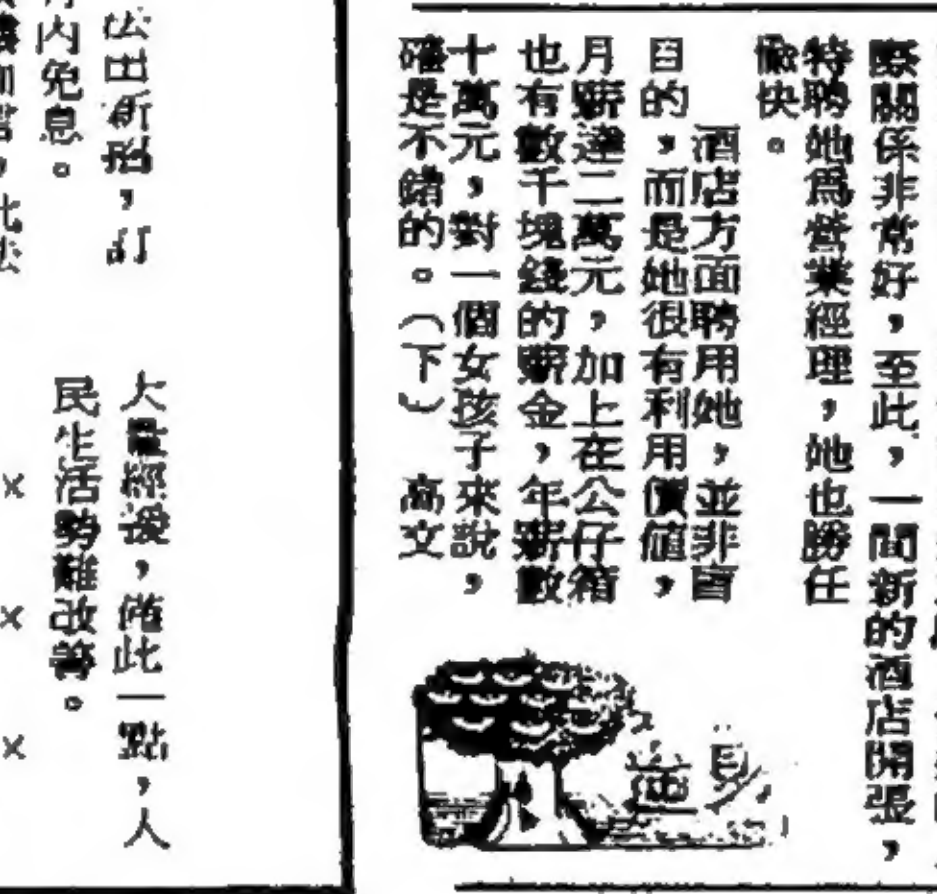 際關係非常好，至此，一間新的酒店開張，
特聘她爲營業經理，她也勝任
愉快。
酒店方面聘用她，並非盲
目的，而是她很有利用價値，
月薪達二萬元，加上在公仔箱
也有數千塊錢的薪金，年薪數
十萬元，對一個女孩子來說，
確是不錯的。（下）　高文
大量經援，僅此一點，人
民生活勢難改善。
× × ×
法出新招，訂
內免息。